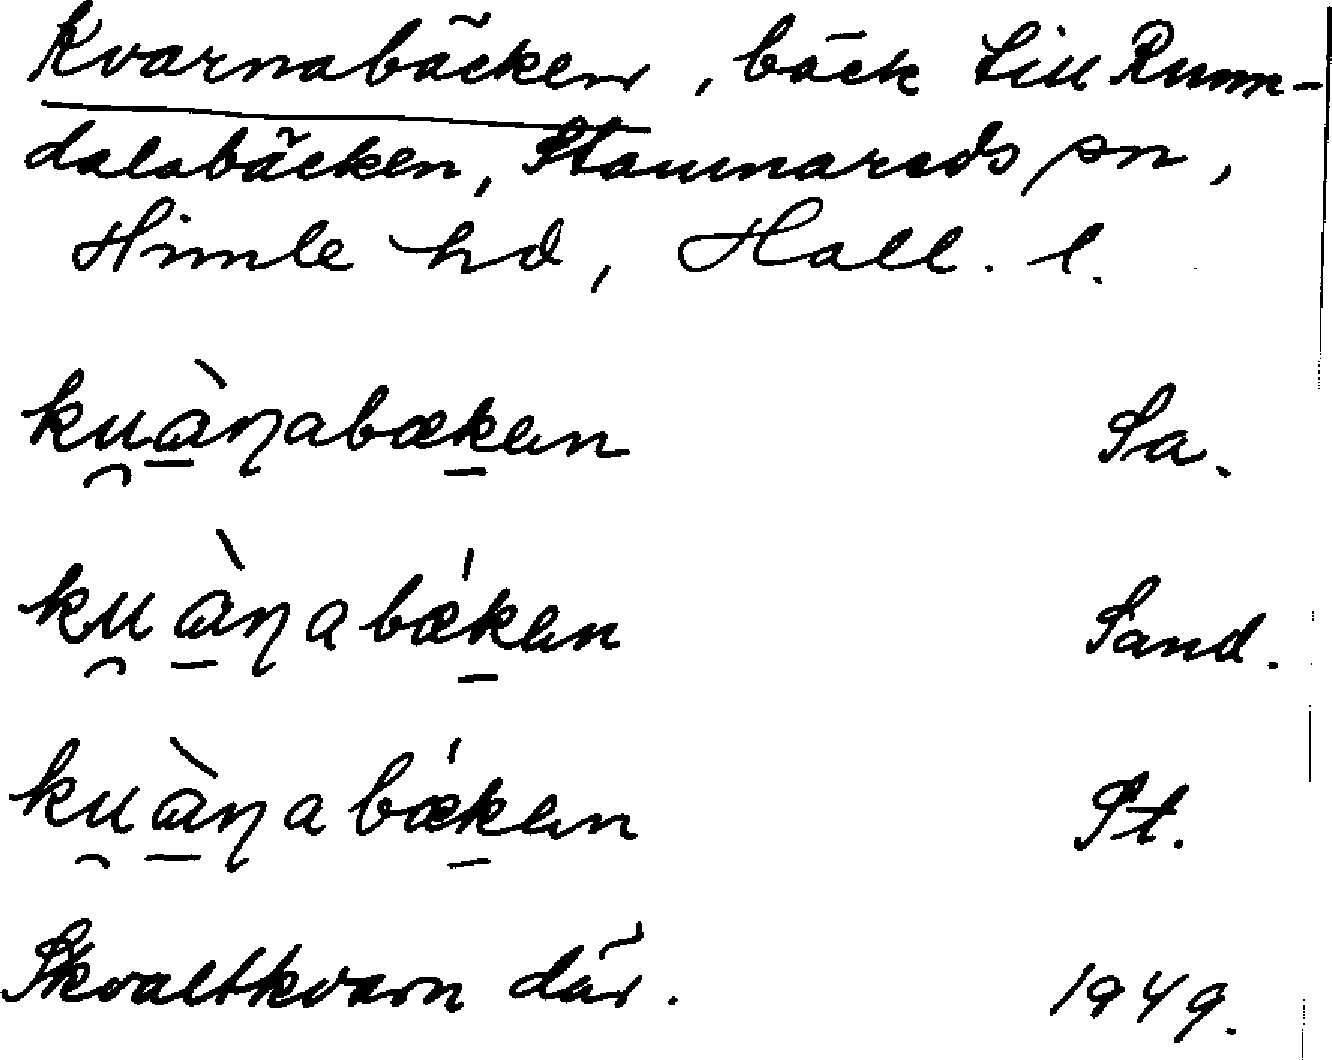 Kvarnabäcken, bäck till Rumm-
dalabäcken, Stamnareds sn,
Himle hd, Hall. l.
ku̯à̱ɳabæḵən Sa.
ku̯à̱ɳabǽḵən Sand.
ku̯à̱ɳabǽḵən St.
Skvaltkvarn där. 1949.